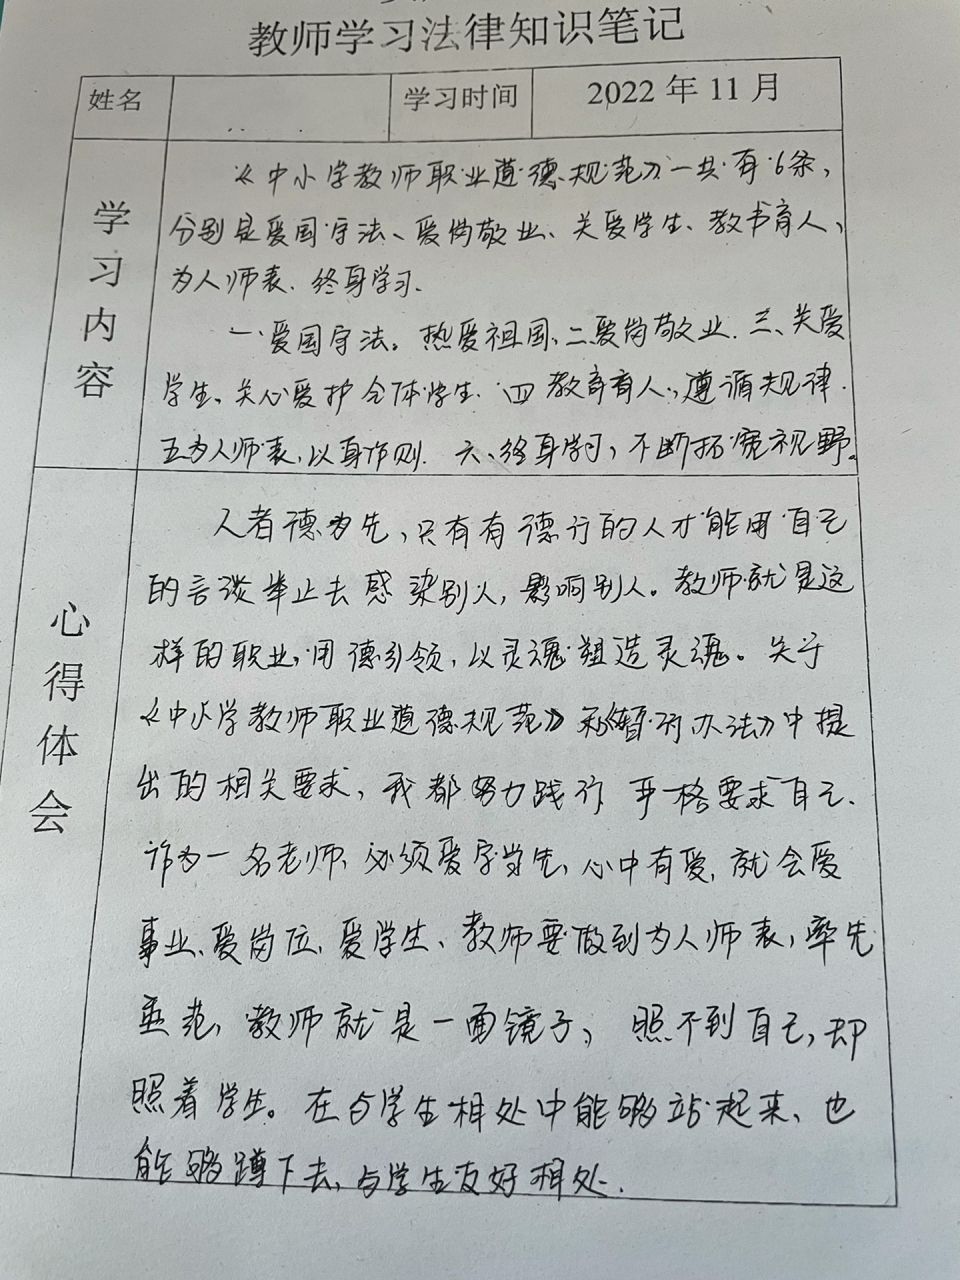 教师学习法律知识笔记
姓名 学习时间 2022 年 11 月
学习内容
《中小学教师职业道德规范》一共有6条,
分别是爱国守法、爱岗敬业、关爱学生、教书育人、
为人师表.终身学习.
一、爱国守法。热爱祖国,二爱岗敬业.三、关爱
学生、关心爱护全体学生.四 教育育人,遵循规律.
五为人师表,以身作则.六、终身学习,不断拓宽视野。
心得体会
人者德为先,只有有德行的人才能用自己
的言谈举止去感染别人,影响别人。教师就是这
样的职业,用德引领,以灵魂塑造灵魂。关于
《中小学教师职业道德规范》和《暂行办法》中提
出的相关要求,我都努力践行 严格要求自己.
作为一名老师,必须爱字当先,心中有爱,就会爱
事业、爱岗位、爱学生、教师要做到为人师表,率先
垂范,教师就是一面镜子,照不到自己,却
照着学生。在与学生相处中能够站起来、也
能够蹲下去,与学生友好相处.